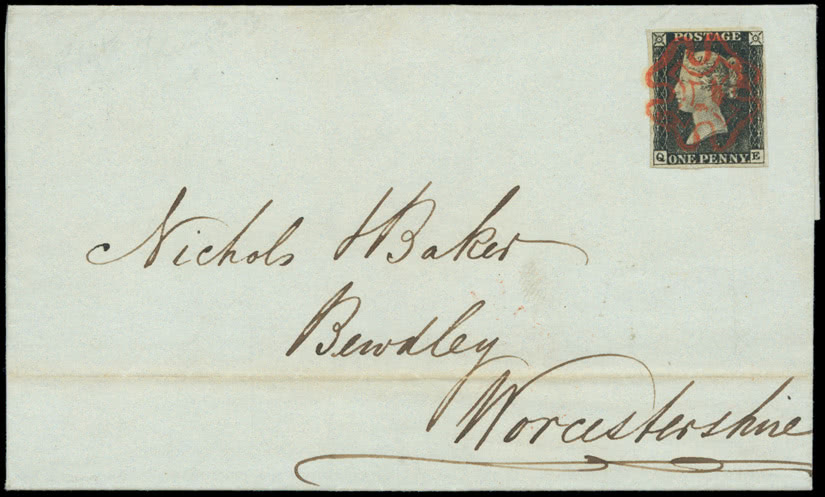 POSTAGE
Q ONE PENNY E
Nichols & Baker
Bewdley
Worcestershire